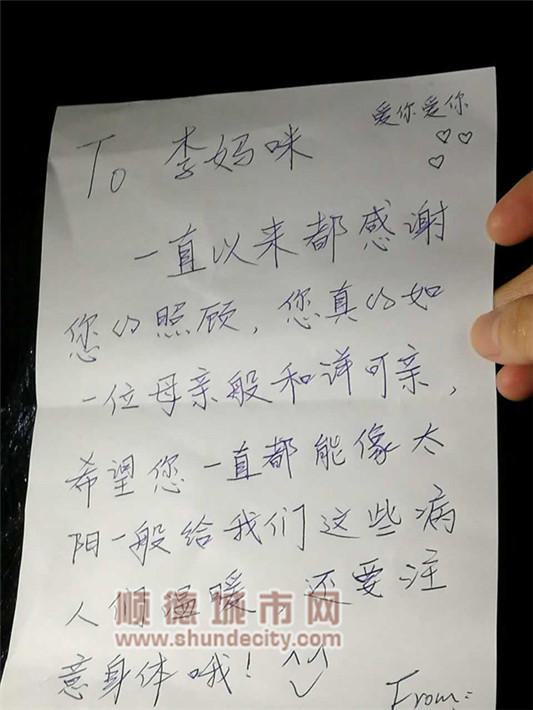 爱你爱你
To 李妈咪
一直以来都感谢
您的照顾，您真的如
一位母亲般和详可亲，
希望您一直都能像太
阳一般给我们这些病
人们温暖，还要注
意身体哦！^_^
From:
顺德城市网
www.shundecity.com